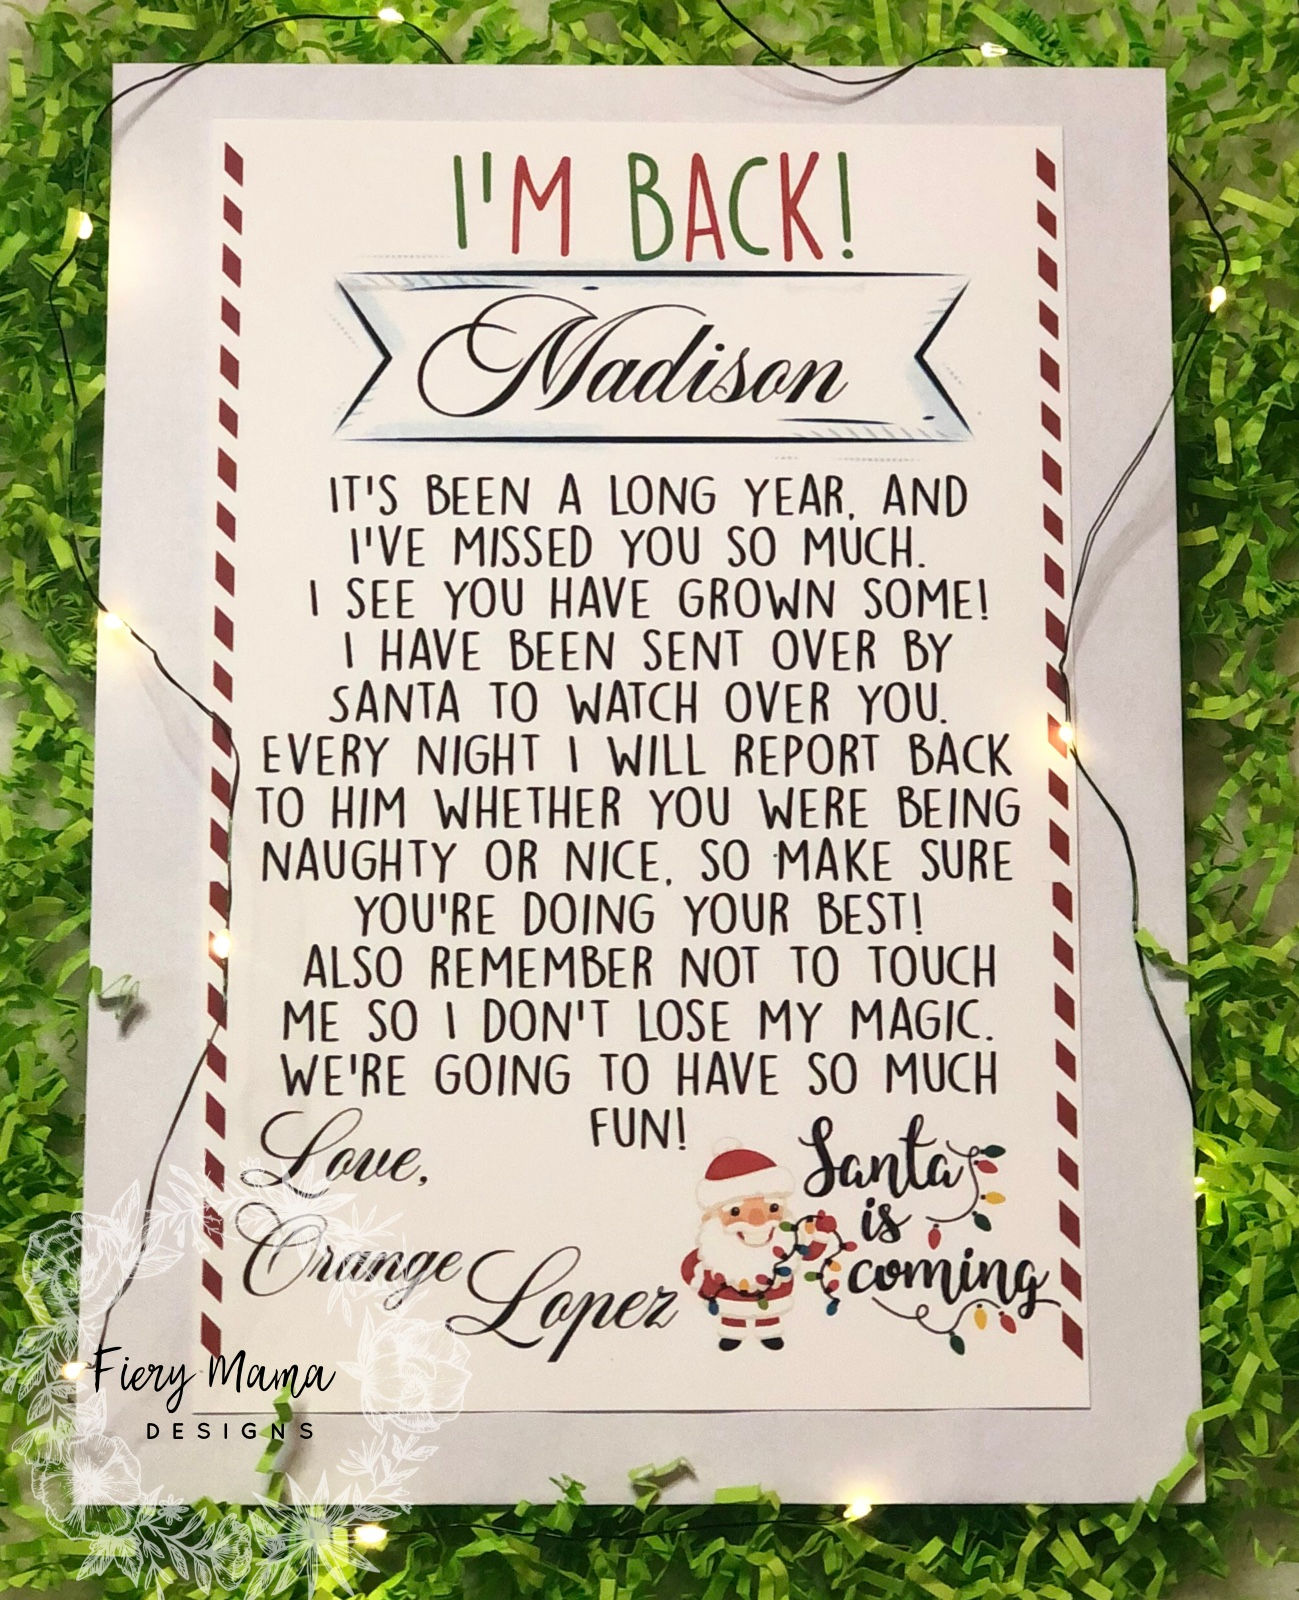 I'M BACK!
Madison
IT'S BEEN A LONG YEAR, AND
I'VE MISSED YOU SO MUCH.
I SEE YOU HAVE GROWN SOME!
I HAVE BEEN SENT OVER BY
SANTA TO WATCH OVER YOU.
EVERY NIGHT I WILL REPORT BACK
TO HIM WHETHER YOU WERE BEING
NAUGHTY OR NICE, SO MAKE SURE
YOU'RE DOING YOUR BEST!
ALSO REMEMBER NOT TO TOUCH
ME SO I DON'T LOSE MY MAGIC.
WE'RE GOING TO HAVE SO MUCH
FUN!
Love,
Orange Lopez
Santa
is
coming
Fiery Mama
DESIGNS